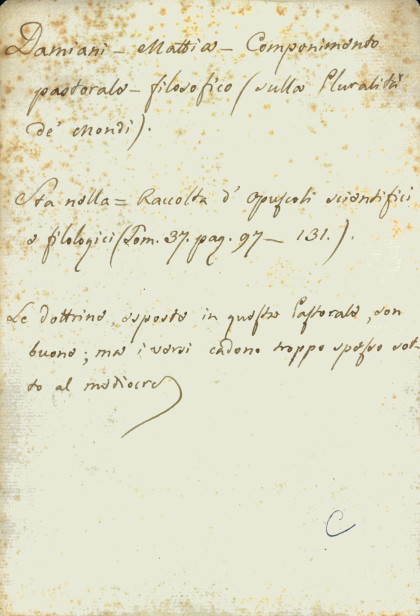 Damiani - Mattia - Componimento
pastorale - filosofico (sulla Pluralità
de' Mondi).
Sta nella = Raccolta d' Opuscoli scientifici
e filologici (Tom. 37. pag. 97 - 131.).
Le dottrine, esposte in questa Pastorale, son
buone; ma i versi cadono troppo spesso sot-
to al mediocre
C